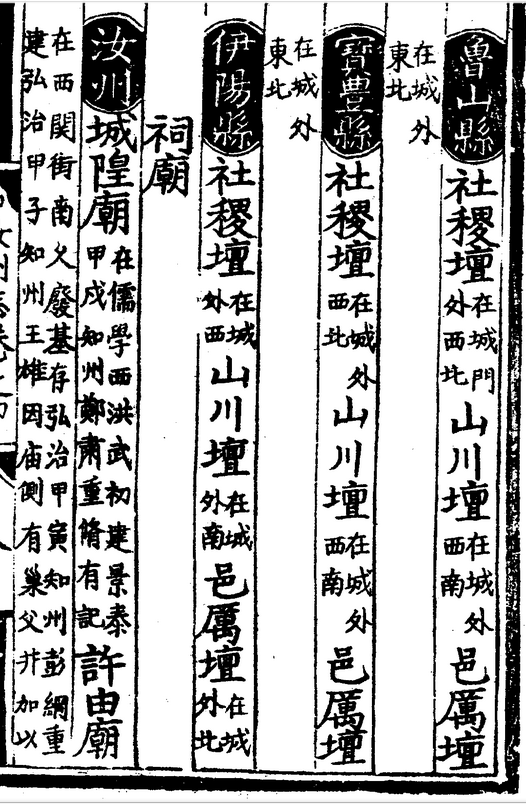 魯山縣社稷壇在城門外西北山川壇在城外西南邑厲壇
在城外東北
寶豊縣社稷壇在城外西北山川壇在城外西南邑厲壇
在城外東北
伊陽縣社稷壇在城外西山川壇在城外南邑厲壇在城外北
祠廟
汝州城隍廟在儒學西洪武初建景泰甲戌知州鄭肅重脩有記許由廟
在西関街南久廢基存弘治甲寅知州彭綱重建弘治甲子知州王雄因庙側有巢父井加以